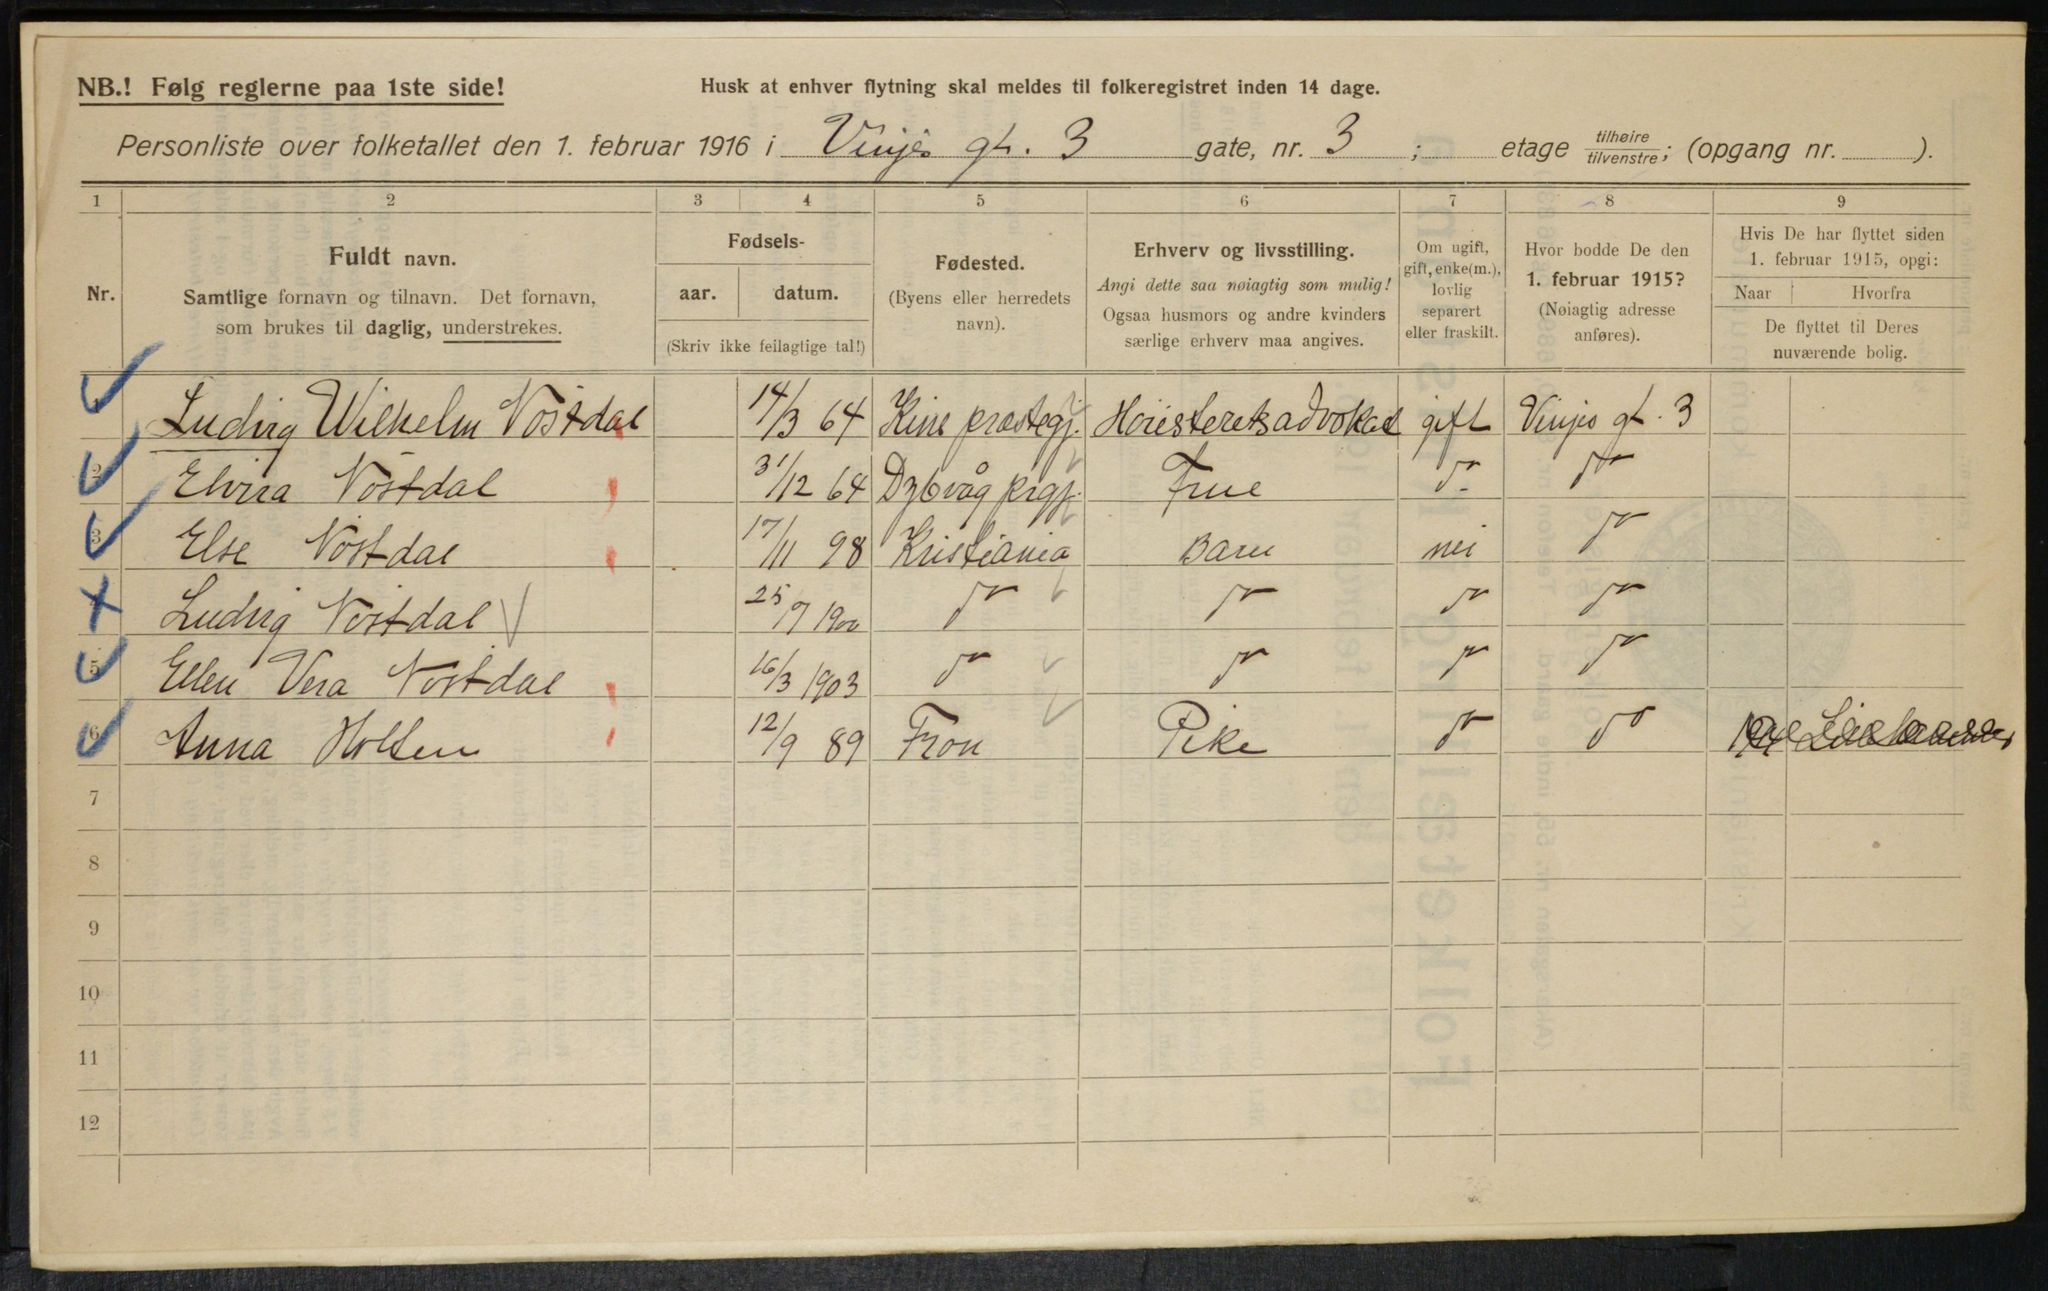 NB.! Følg reglerne paa 1ste side!
Husk at enhver flytning skal meldes til folkeregistret inden 14 dage.
Personliste over folketallet den 1. februar 1916 i Vinjes gt. 3 gate, nr. 3 ; etage tilhøire/tilvenstre; (opgang nr. ).
1 2 3 4 5 6 7 8 9
Nr.
Fuldt navn.
Samtlige fornavn og tilnavn. Det fornavn,
som brukes til daglig, understrekes.
Fødsels-
aar. datum.
(Skriv ikke feilagtige tal!)
Fødested.
(Byens eller herredets
navn).
Erhverv og livsstilling.
Angi dette saa nøiagtig som mulig!
Ogsaa husmors og andre kvinders
særlige erhverv maa angives.
Om ugift,
gift, enke(m.),
lovlig
separert
eller fraskilt.
Hvor bodde De den
1. februar 1915?
(Nøiagtig adresse
anføres).
Hvis De har flyttet siden
1. februar 1915, opgi:
Naar Hvorfra
De flyttet til Deres
nuværende bolig.
1 Ludvig Wilhelm Nöstdal 14/3 64 præstegj. Höiesteretsadvokat gift Vinjes gt. 3
2 Elvira Nöstdal 31/12 64 Dybvåg prgj. Frue do do
3 Else Nöstdal 17/11 98 Kristiania Barn nei do
Ludvig Nöstdal 25/9 1900 do do do do
5 Ellen Vera Nöstdal 16/3 1903 do do do do
6 Anna Holten 12/9 89 Fron Pike do do
7
8
9
10
11
12